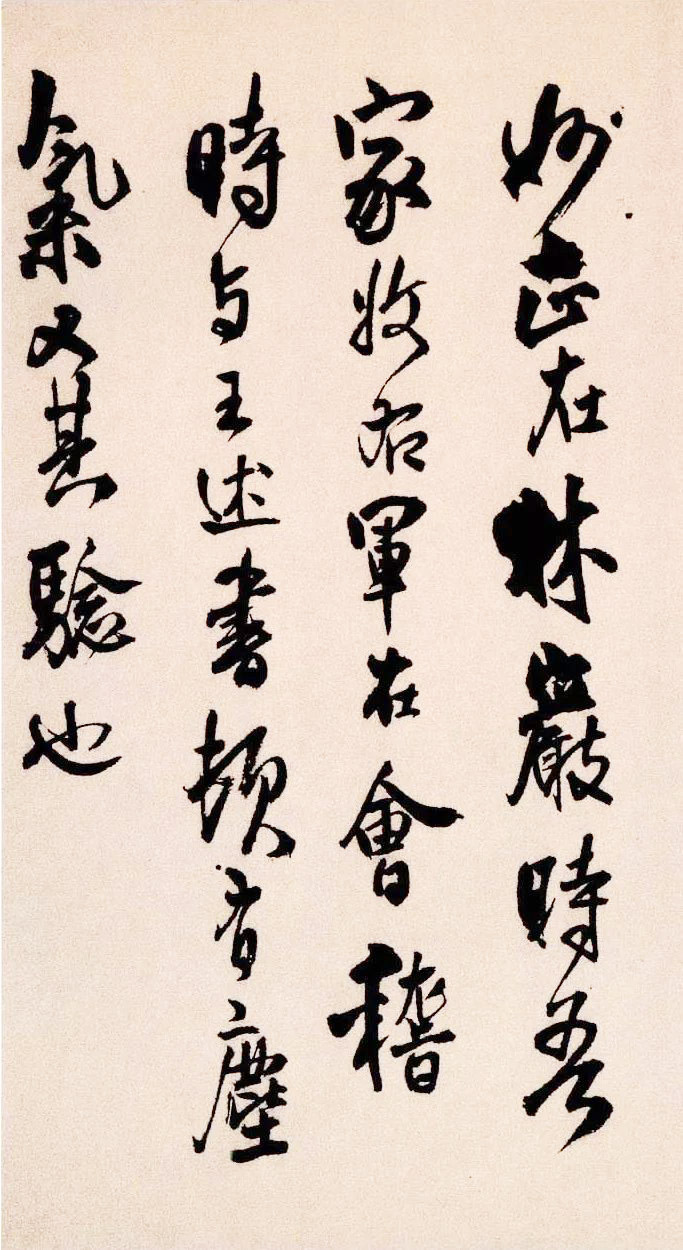 妙正在林嚴時吾
家收右軍在會稽
時与王述書頓有塵
氣又其驗也